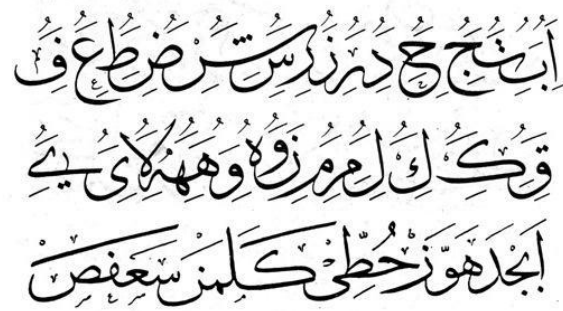 ا ب ت ج ح د ر ز ر س ش ر ض ط ع ف
ق ك ك ل م ر م ز و ه و ه ه ه لا ى ي
ابجد هوّز حطّي كلمن سعفص